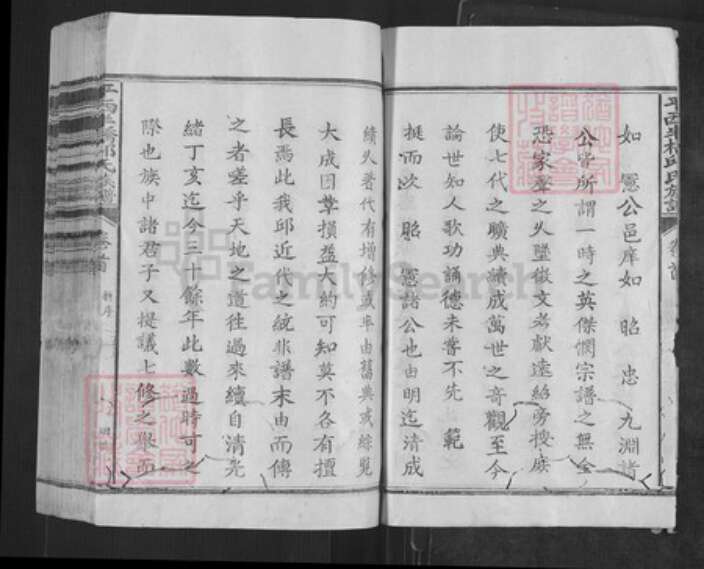 如 憲公邑庠如 昭 忠 九淵諸
公皆所謂一時之英傑憫宗譜之無全
恐家聲之久墜徵文考獻遠紹旁搜廢
使七代之曠典讀成萬世之奇觀至今
論世知人歌功誦德未嘗不先 範
挺而次 昭 憲諸公也由明迄清成
績久著代有增修或率由舊典或綜覽
大成因革損益大約可知莫不各有擅
長焉此我邱近代之統非譜末由而傳
之者嗟乎天地之道往過來續自清光
緒丁亥迄今三十餘年此數過時可之
際也族中諸君子又提議七修之舉而
卷首
FamilySearch